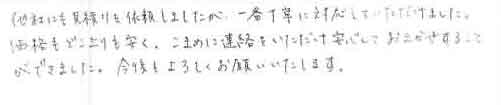 他社にも見積りを依頼しましたが、一番丁寧に対応していただけました。
価格もどこよりも安く、こまめに連絡をいただけて安心しておまかせすること
ができました。今後もよろしくお願いいたします。